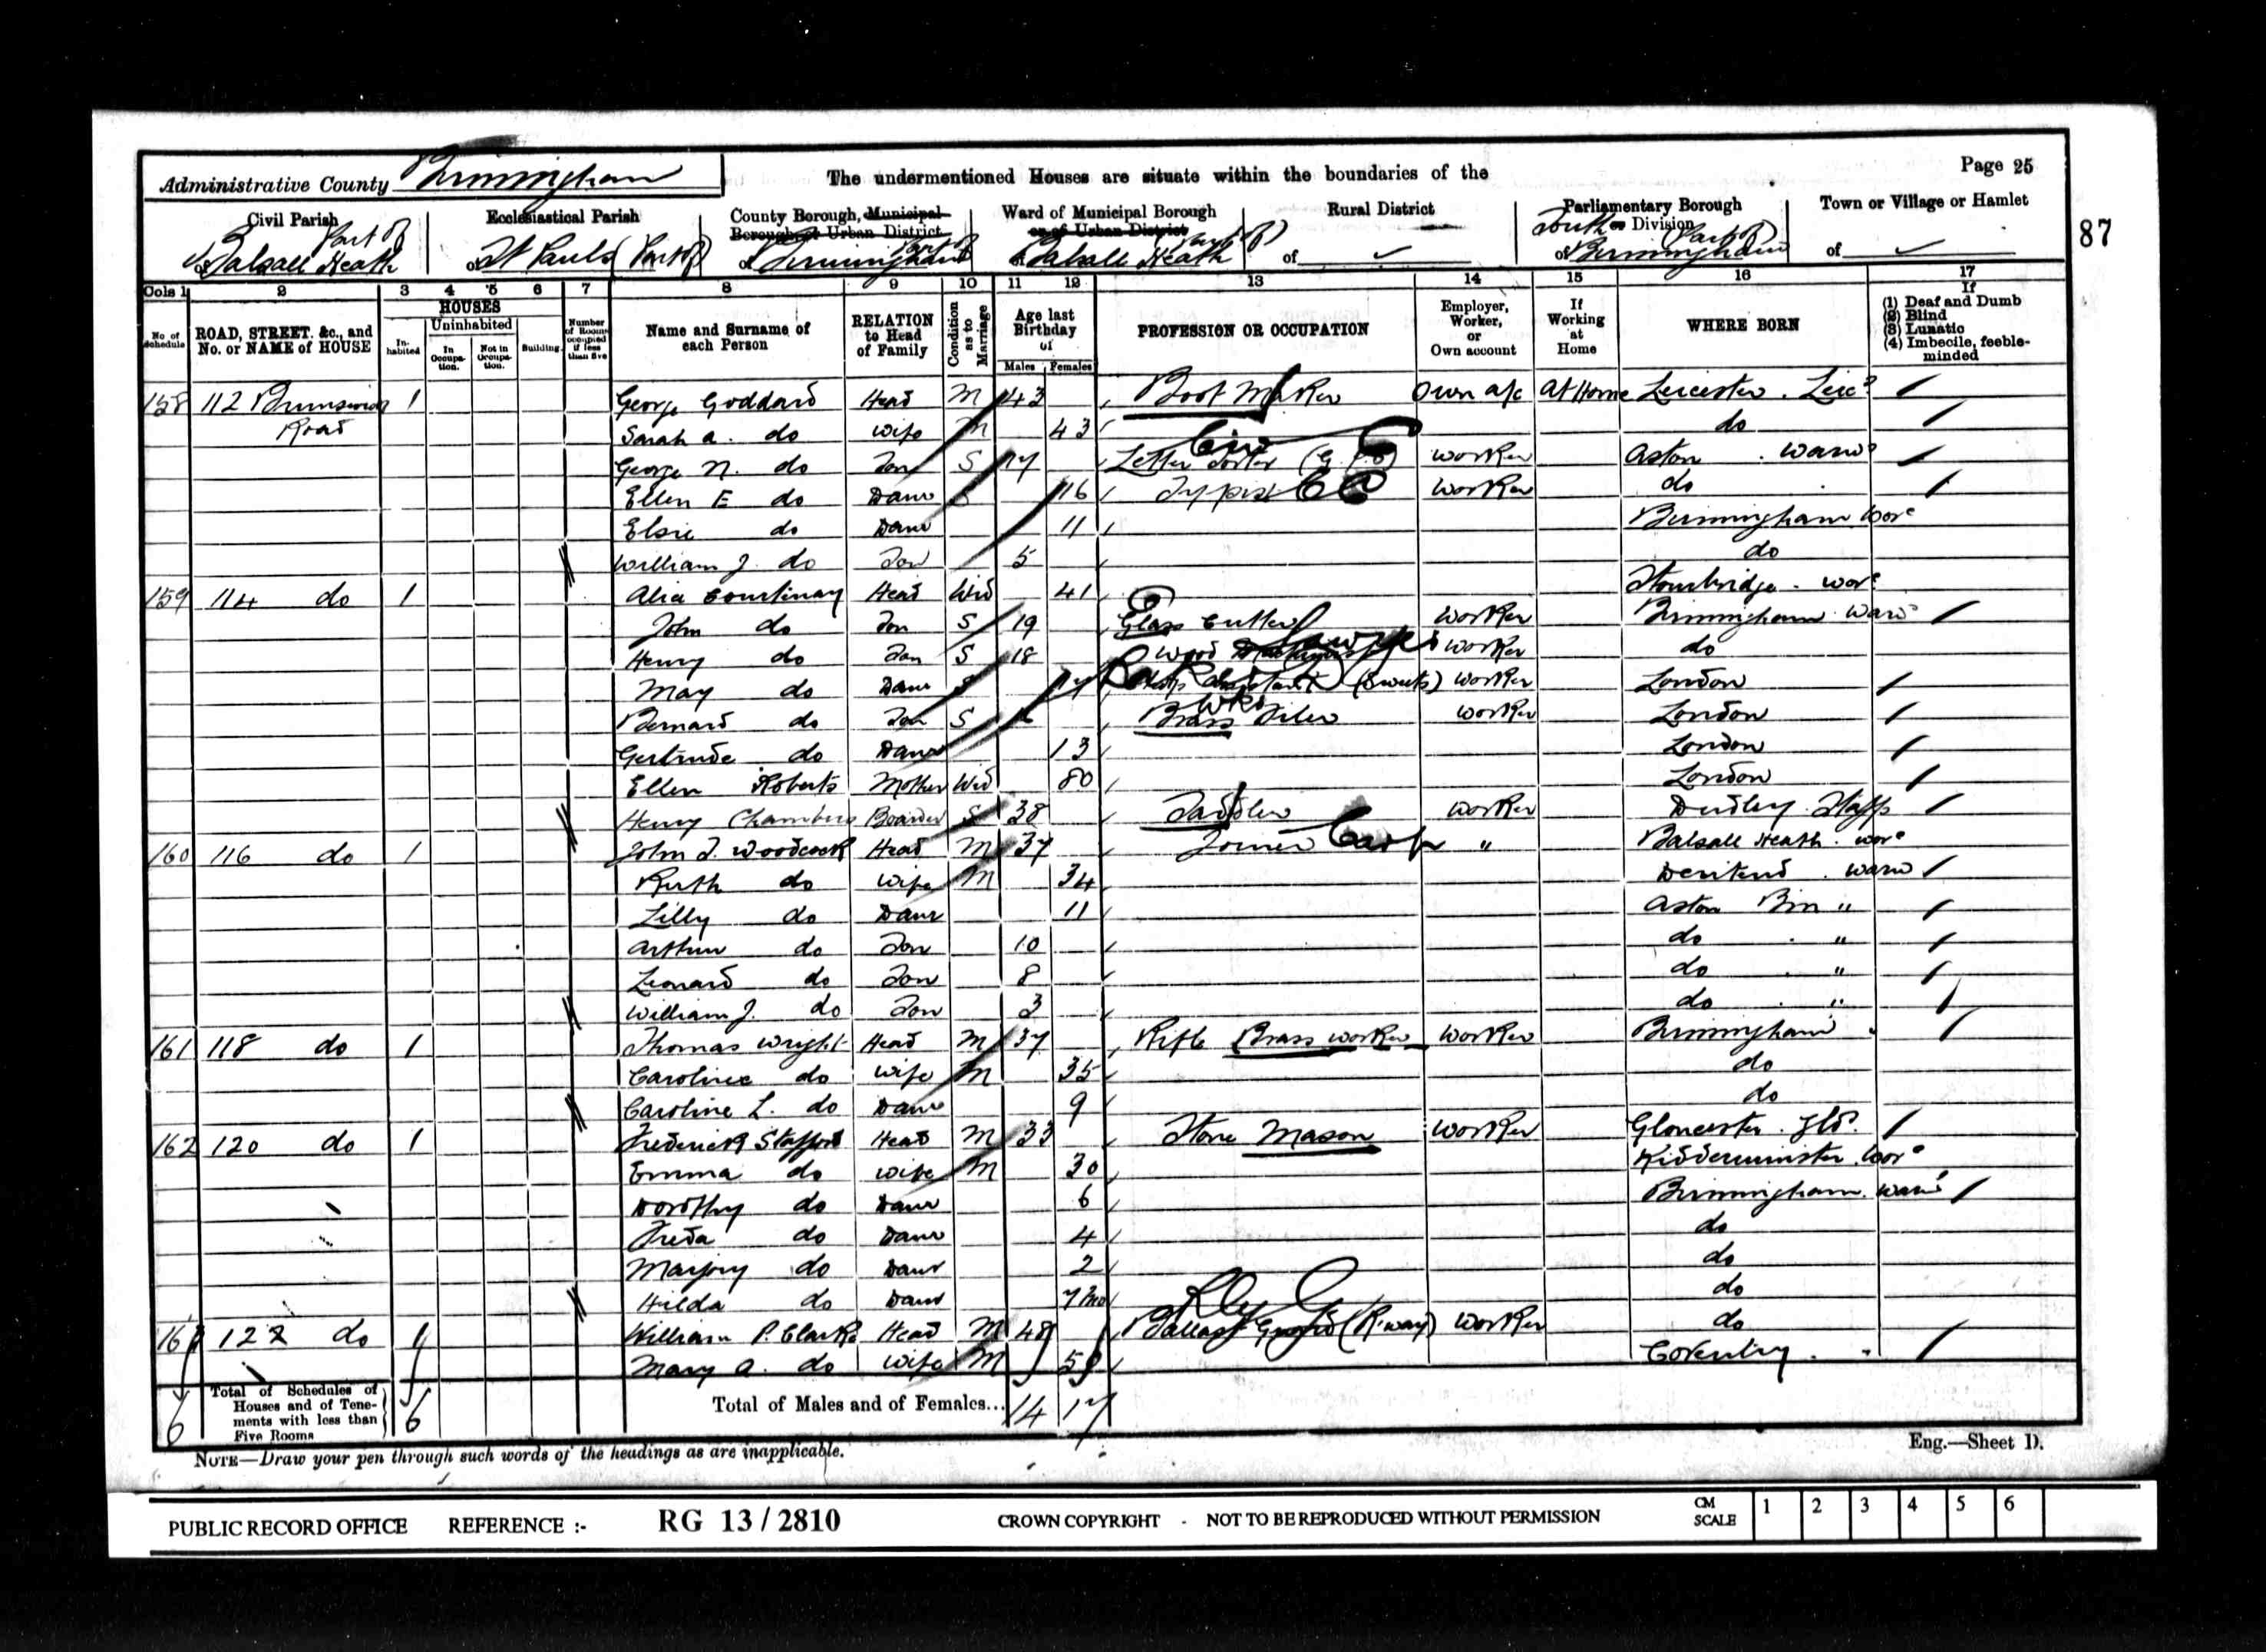 Page 25
Administrative County Birmingham The undermentioned Houses are situate within the boundaries of the
87
Civil Parish Ecclesiastical Parish County Borough, Municipal Borough or Urban District Ward of Municipal Borough or of Urban District Rural District Parliamentary Borough or Division Town or Village or Hamlet
of Balsall Heath Part of of St Pauls (Part of) of Birmingham Part of of Balsall Heath (Part of) of South of Birmingham Part of of
Cols 1 2 3 4 5 6 7 8 9 10 11 12 13 14 15 16 17
No of Schedule ROAD, STREET, &c., and No. or NAME of HOUSE HOUSES Inhabited Uninhabited In Occupation. Not in Occupation. Building. Number of Rooms occupied if less than five Name and Surname of each Person RELATION to Head of Family Condition as to Marriage Age last Birthday of Males Females PROFESSION OR OCCUPATION Employer, Worker, or Own account If Working at Home WHERE BORN If (1) Deaf and Dumb (2) Blind (3) Lunatic (4) Imbecile, feeble-minded
158 112 Brunswick Road 1 George Goddard Head M 43 Boot Maker Own a/c At Home Leicester . Leic
Sarah A. do Wife M 43 do
George N. do Son S 17 Letter Sorter (G.P.O) Civ Worker Aston . Warw
Ellen E do Daur S 16 Typist Worker do
Elsie do Daur 11 Birmingham Worc
William J. do Son 5 do
159 114 do 1 Alice Courtinay Head Wid 41 Stourbridge . Worc
John do Son S 19 Glass Cutter Worker Birmingham Warw
Henry do Son S 18 Wood Sawyer Worker do
May do Daur S 17 Shop Assistant (Sweets) Worker London
Bernard do Son S Brass Filer Wks Worker London
Gertrude do Daur 13 London
Ellen Roberts Mother Wid 80 London
Henry Chambers Boarder S 38 Saddler Worker Dudley . Staffs
160 116 do 1 John J. Woodcock Head M 37 Joiner Carp " Balsall Heath . Worc
Ruth do Wife M 34 Deritend . Warw
Lilly do Daur 11 Aston Bm "
Arthur do Son 10 do . "
Leonard do Son 8 do . "
William J. do Son 3 do . "
161 118 do 1 Thomas Wright Head M 37 Rifle Brass Worker Worker Birmingham "
Caroline do Wife M 35 do
Caroline L. do Daur 9 do
162 120 do 1 Frederick Stafford Head M 33 Stone Mason Worker Gloucester . Glo.
Emma do Wife M 30 Kidderminster . Worc
Dorothy do Daur 6 Birmingham . Warw
Freda do Daur 4 do
Marjory do Daur 2 do
Hilda do Daur 7 mo do
16 122 do 1 William P. Clarke Head M 48 Ballast Guard (R.way) Rly G Worker do
Mary A. do Wife M 59 Coventry . "
6 Total of Schedules of Houses and of Tenements with less than Five Rooms 6 Total of Males and of Females... 14 17
NOTE—Draw your pen through such words of the headings as are inapplicable.
Eng.—Sheet D.
PUBLIC RECORD OFFICE REFERENCE :- RG 13 / 2810 CROWN COPYRIGHT - NOT TO BE REPRODUCED WITHOUT PERMISSION CM SCALE 1 2 3 4 5 6